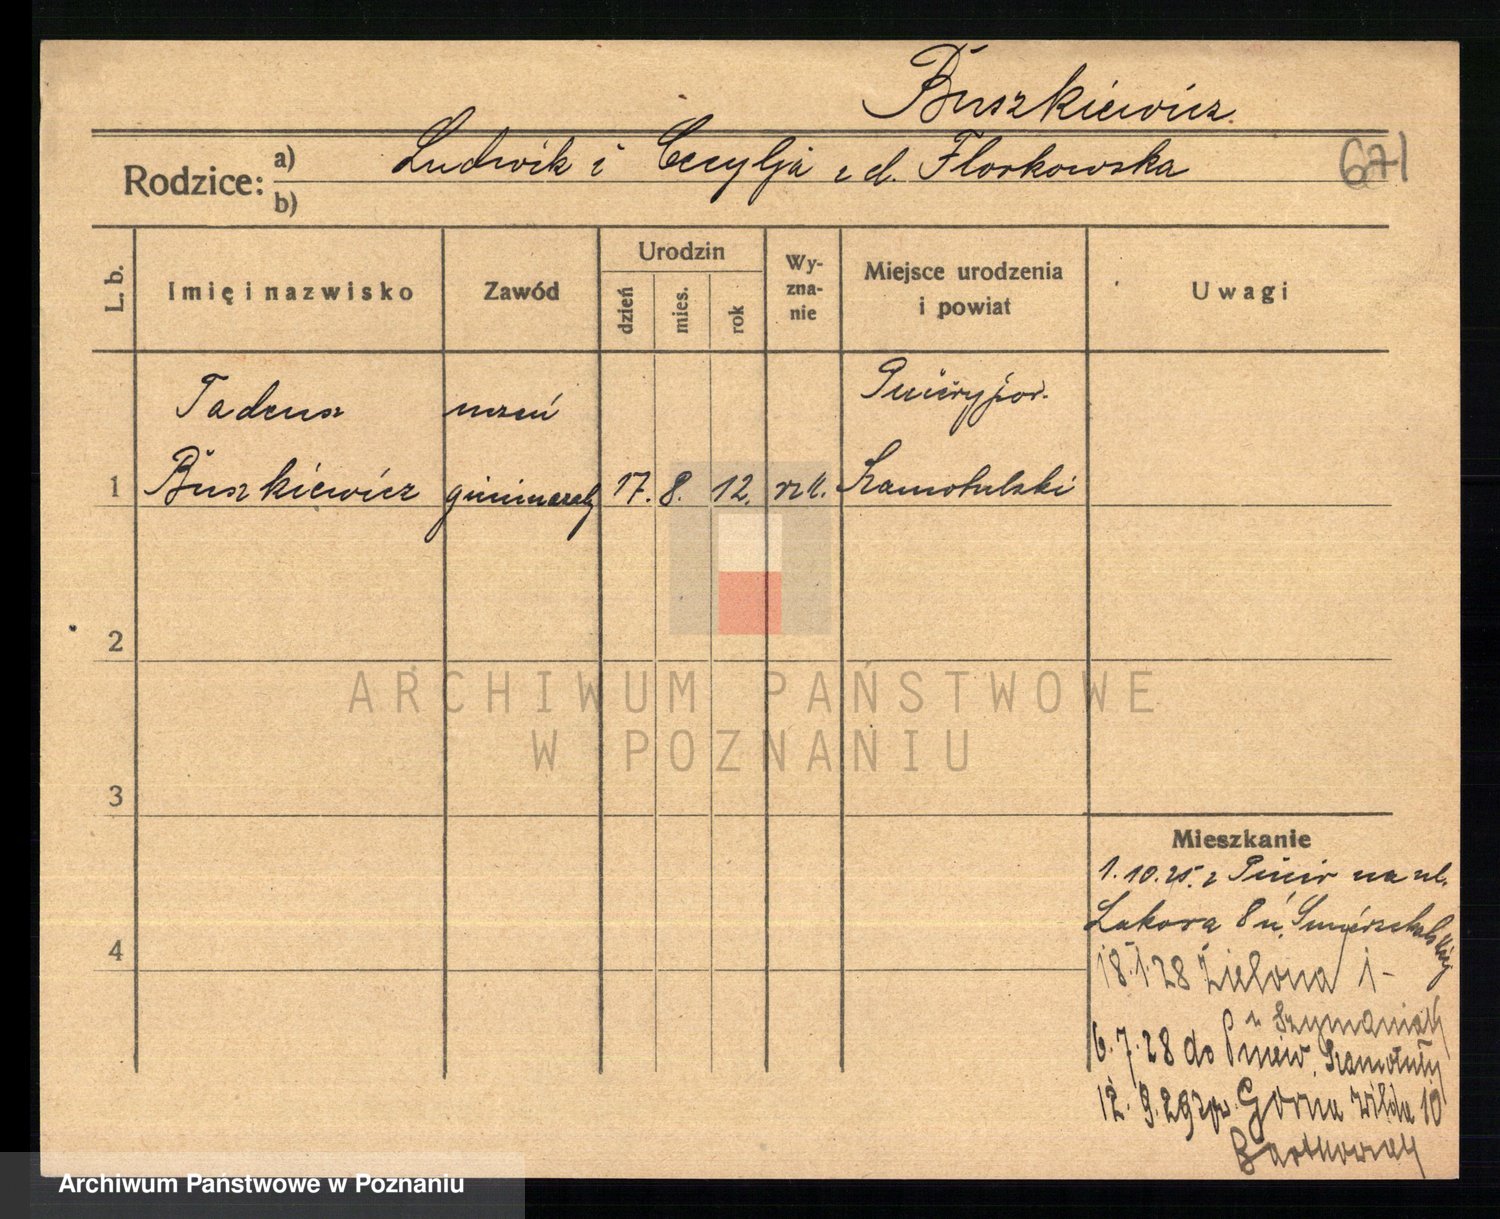 Buszkiewicz.
Rodzice: a) Ludwik i Cecylja z d. Florkowska
b)
671
L. b.
Imię i nazwisko
Zawód
Urodzin
dzień
mies.
rok
Wy-
zna-
nie
Miejsce urodzenia
i powiat
Uwagi
Tadeusz uczeń Pniewy pow.
1 Buszkiewicz gimnazaly 17. 8. 12. rzk. Szamotulski
2
ARCHIWUM PAŃSTWOWE
W POZNANIU
3
Mieszkanie
1.10.25. z Pniew na ul.
Łąkowa 8 u.
4
18.1.28 Zielona 1-
u Szymaniak
6.7.28 do Pniew. Szamotuły
12.9.29 zpw. Górna Wilda 10
Bartkowiak
Archiwum Państwowe w Poznaniu